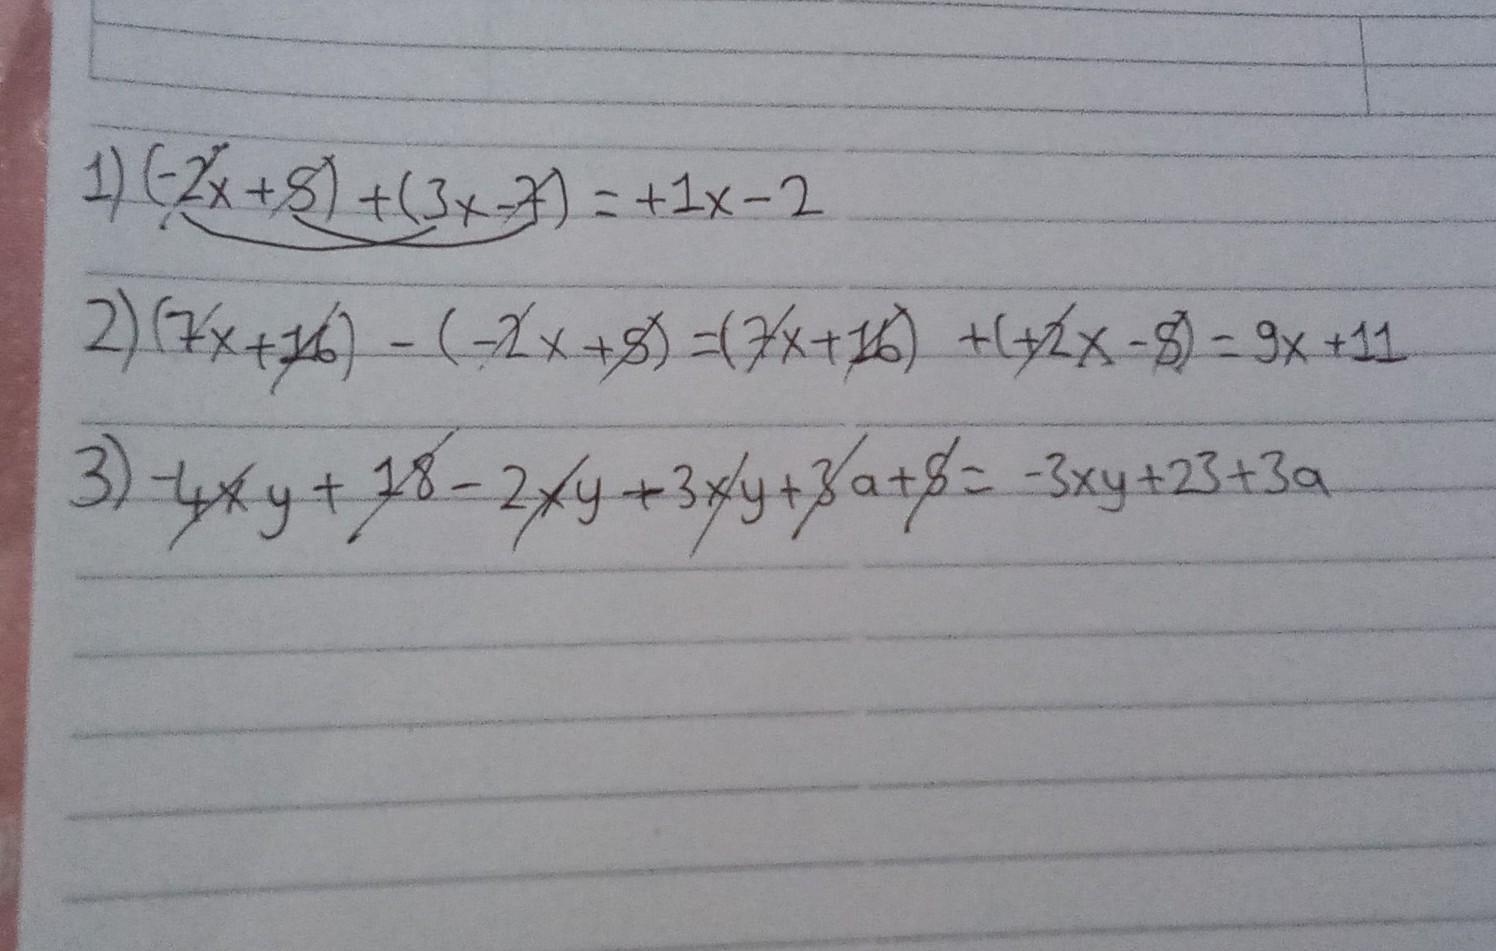 1) (-2x+8) +(3x-7) = +1x-2
2) (7x+16) - (-2x+8) =(7x+16) +(+2x-8) = 9x+11
3) -4xy + 18 - 2xy +3xy+3a+8= -3xy+23+3a